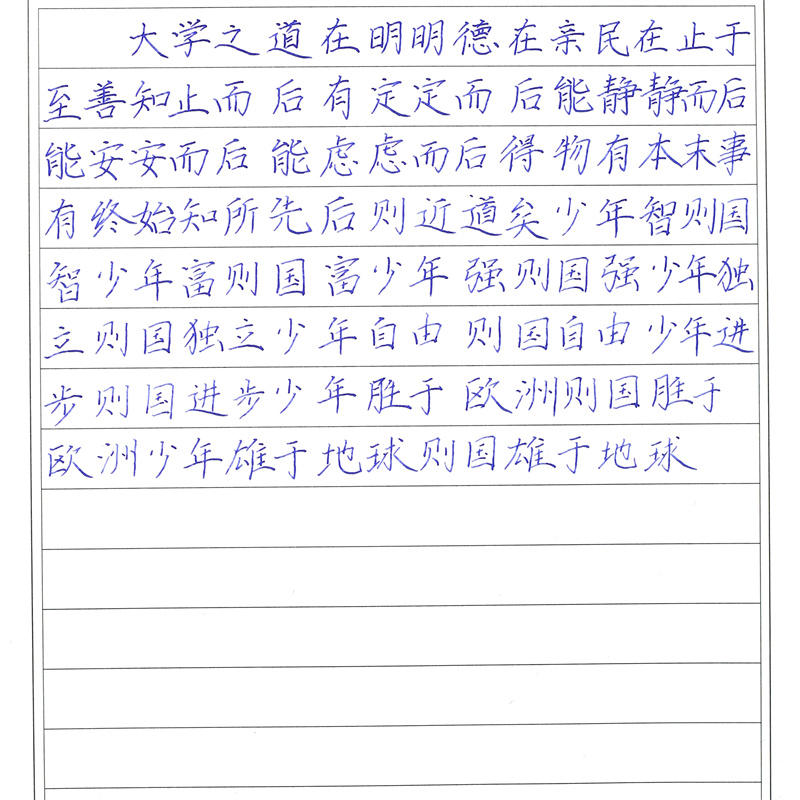 大学之道在明明德在亲民在止于
至善知止而后有定定而后能静静而后
能安安而后能虑虑而后得物有本末事
有终始知所先后则近道矣少年智则国
智少年富则国富少年强则国强少年独
立则国独立少年自由则国自由少年进
步则国进步少年胜于欧洲则国胜于
欧洲少年雄于地球则国雄于地球